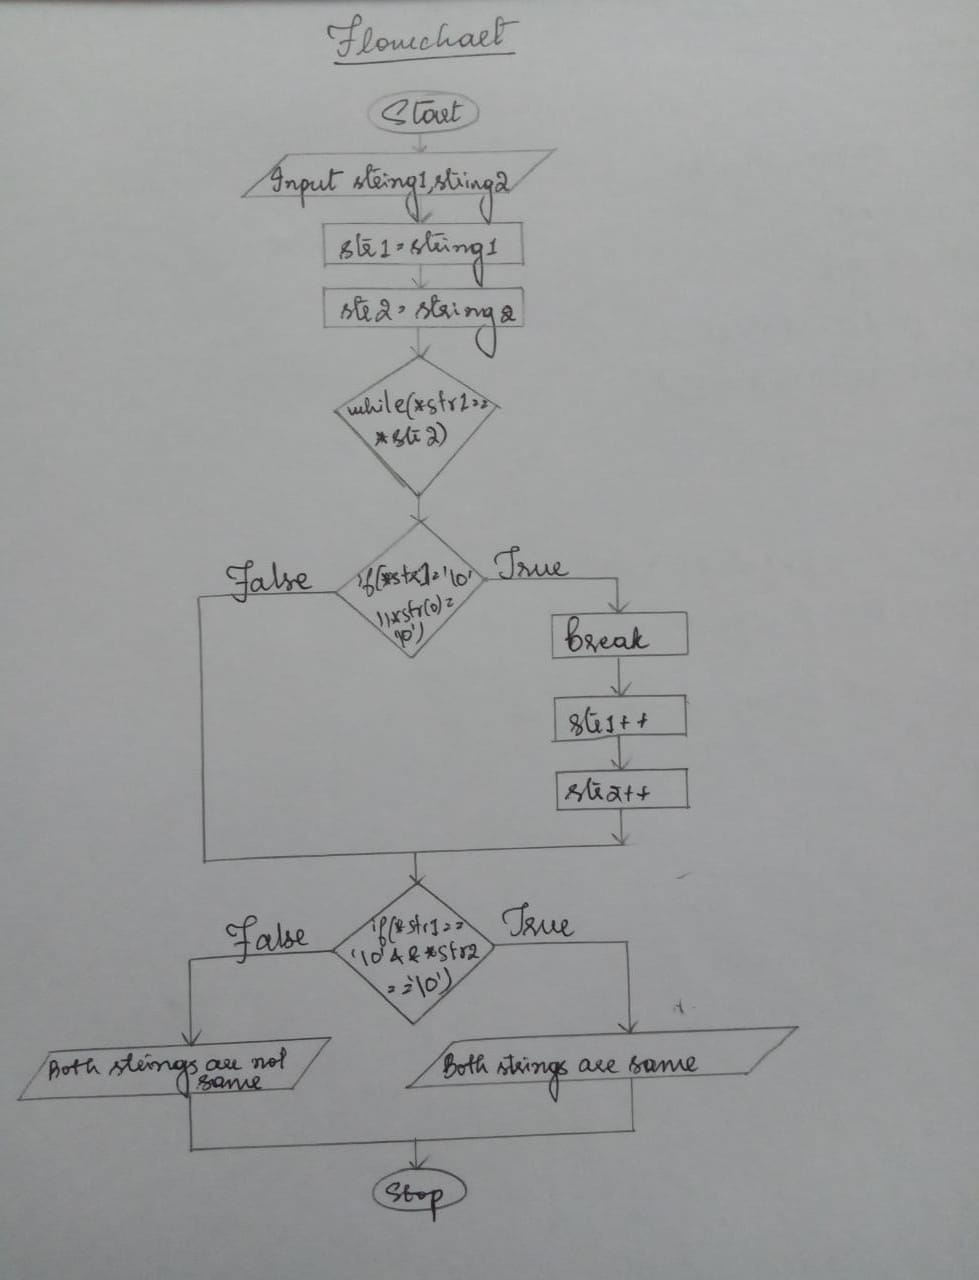 Flowchart
Start
Input string1,string2
str1=string1
str2=string2
while(*str1==
*str2)
False
True
if(*str1='\0'
||*str(0)=
'\0')
break
str1++
str2++
False
True
if(*str1==
'\0'&&*str2
=='\0')
Both strings are not
same
Both strings are same
Stop